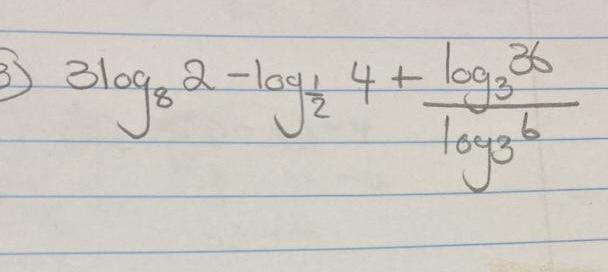 3) 3log₈ 2 - log_{1/2} 4 + \frac{log₃ 36}{log₃ 6}